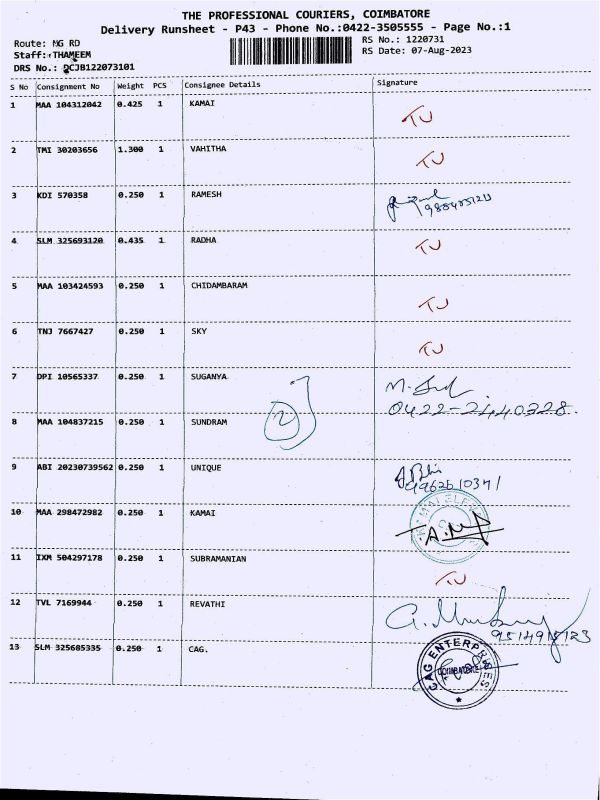 THE PROFESSIONAL COURIERS, COIMBATORE
Delivery Runsheet - P43 - Phone No.:0422-3505555 - Page No.:1
Route: MG RD
RS No.: 1220731
Staff: THAMEEM
RS Date: 07-Aug-2023
DRS No.: DCJB122073101
S No Consignment No Weight PCS Consignee Details Signature
1 MAA 104312042 0.425 1 KAMAI TU
2 TMI 30203656 1.300 1 VAHITHA TU
3 KDI 570358 0.250 1 RAMESH
4 SLM 325693120 0.435 1 RADHA TU
5 MAA 103424593 0.250 1 CHIDAMBARAM TU
6 TNJ 7667427 0.250 1 SKY TU
7 DPI 10565337 0.250 1 SUGANYA
0422-2440328.
8 MAA 104837215 0.250 1 SUNDRAM 2
9 ABI 20230739562 0.250 1 UNIQUE
10 MAA 298472982 0.250 1 KAMAI
11 IXM 504297178 0.250 1 SUBRAMANIAN TU
12 TVL 7169944 0.250 1 REVATHI
13 SLM 325685335 0.250 1 CAG.
CAG ENTERPRISES
COIMBATORE